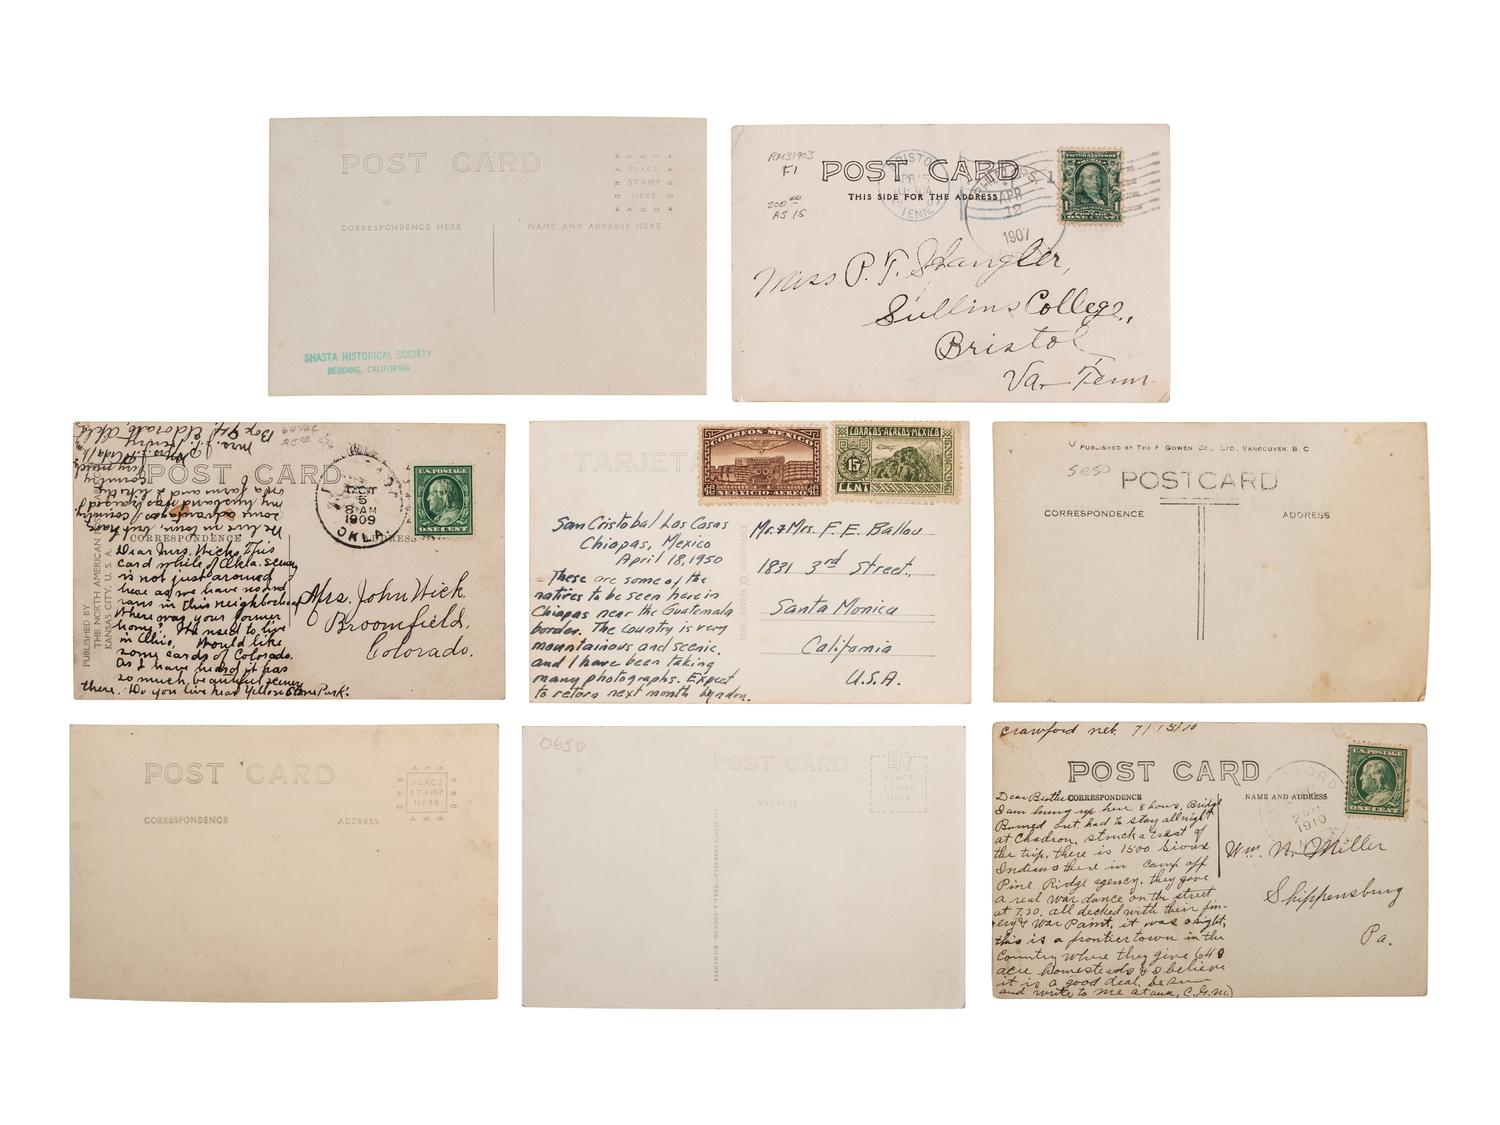 POST CARD
AZO
PLACE
STAMP
HERE
AZO
CORRESPONDENCE HERE
NAME AND ADDRESS HERE
SHASTA HISTORICAL SOCIETY
REDDING, CALIFORNIA
RM31903
F1
200
AS IS
POST CARD
THIS SIDE FOR THE ADDRESS
BRISTOL
TENN.
APR
12
1907
Miss P. T. Spangler,
Sullins College,
Bristol
Va-Tenn.
POST CARD
CORRESPONDENCE
ADDRESS
PUBLISHED BY
THE NORTH AMERICAN
KANSAS CITY, U.S.A.
OCT
5
8 AM
1909
OKLA.
U.S. POSTAGE
ONE CENT
Dear Mrs. Wick, This
card while of Okla. scenery
is not just around
here as we have no
in this neighborhood
Where was your former
home? We used to live
in Ohio. Would like
some cards of Colorado.
As I have heard it has
so much beautiful scenery
there. Do you live near Yellow Stone Park?
We live in town but have
some advantages of country
my husband has raised
on a farm and I like the
country
very much
Mrs.
Box 94 Eldorado Okla.
Mrs. John Wick.
Broomfield,
Colorado.
TARJETA
CORREOS MEXICO
SERVICIO AEREO
CORREOS AEREOS MEXICO
15
CENT
San Cristobal Las Casas
Chiapas, Mexico
April 18, 1950
These are some of the
natives to be seen here in
Chiapas near the Guatemala
border. The country is very
mountainous and scenic,
and I have been taking
many photographs. Expect
to return next month
Mr. & Mrs. F. E. Ballou
1831 3rd Street,
Santa Monica
California
U.S.A.
PUBLISHED BY THE F GOWEN CO., LTD, VANCOUVER, B. C
5e50
POSTCARD
CORRESPONDENCE
ADDRESS
POST CARD
AZO
PLACE
STAMP
HERE
CORRESPONDENCE
ADDRESS
0650
POST CARD
ADDRESS
PLACE
STAMP
HERE
Crawford neb. 7/15/10
POST CARD
CORRESPONDENCE
NAME AND ADDRESS
1910
U.S. POSTAGE
ONE CENT
Dear Brother
I am hung up here 8 hours, Bridge
Burned out. had to stay all night
at Chadron, struck a treat of
the trip, there is 1500 Sioux
Indians there in camp off
Pine Ridge agency. they gave
a real war dance on the street
at 7.30. all decked with their fin-
ery & War Paint, it was a sight,
this is a frontier town in the
Country where they give 640
acre homesteads & I believe
it is a good deal, be sure
and write to me at
Wm. N. Miller
Shippensburg
Pa.